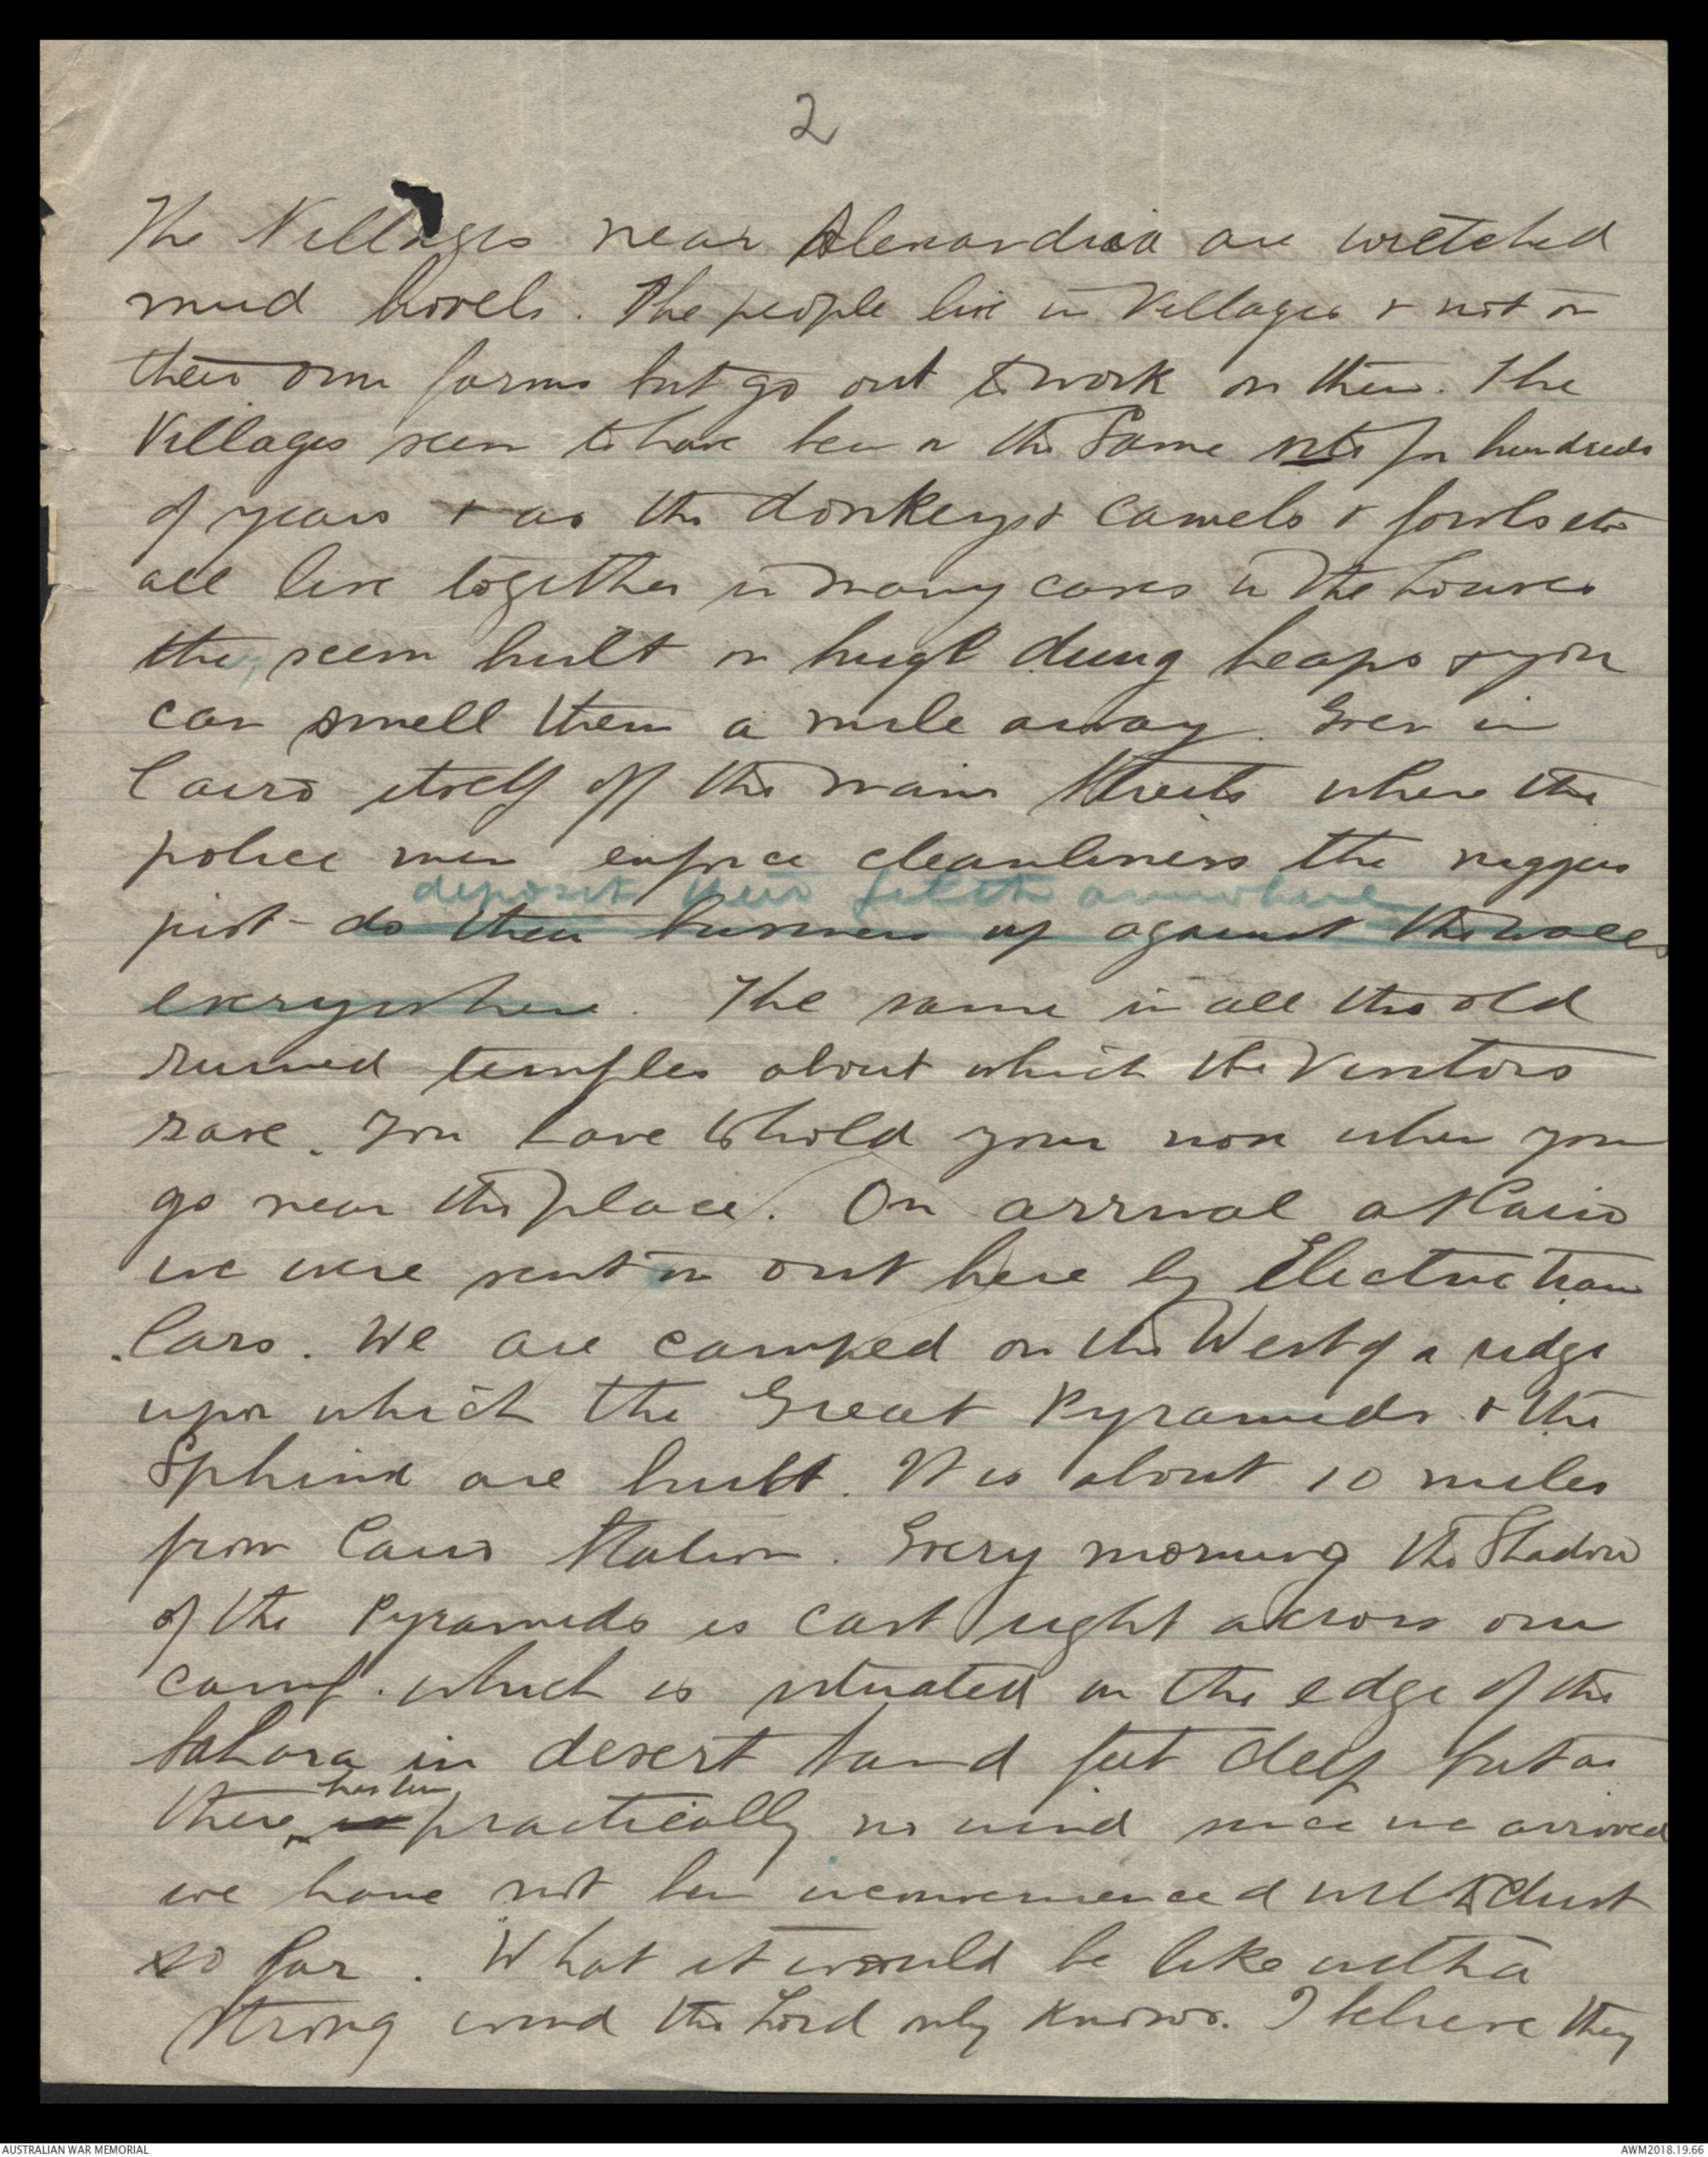 2
The Villages near Alexandria are wretched
mud hovels. The people live in Villages & not on
their own farms but go out to work on them. The
Villages seem to have been on the Same site for hundreds
of years & as the donkeys & camels & fowls etc
all live together in many cases in the houses
they seem built on huge dung heaps & you
can smell them a mile away. Even in
Cairo itself off the main Streets where the
police men enforce cleanliness the niggers
deposit their filth anywhere
just do their business up against the walls
everywhere. The same in all the old
ruined temples about which the Visitors
rave. You have to hold your nose when you
go near the place. On arrival at Cairo
we were sent on out here by Electric tram
Cars. We are camped on the West of a ridge
upon which the Great Pyramids & the
Sphinx are built. It is about 10 miles
from Cairo Station. Every morning the Shadow
of the Pyramids is cast right across our
camp. which is situated on the edge of the
Sahara in desert sand feet deep but as
has been
there is practically no wind since we arrived
we have not been inconvenienced with dust
so far. What it would be like with a
strong wind the Lord only knows. I believe they
AUSTRALIAN WAR MEMORIAL
AWM2018.19.66